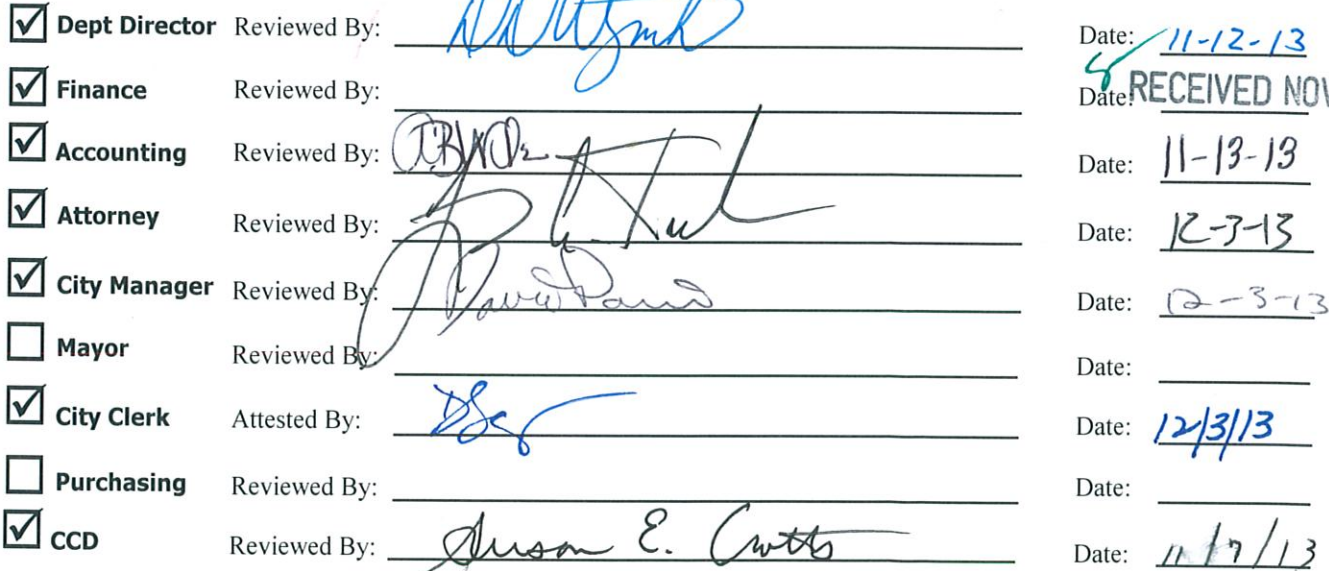 Dept Director Reviewed By: Date: 11-12-13
Finance Reviewed By: Date: RECEIVED NOV
Accounting Reviewed By: Date: 11-13-13
Attorney Reviewed By: Date: 12-3-13
City Manager Reviewed By: David Date: 12-3-13
Mayor Reviewed By: Date:
City Clerk Attested By: Date: 12/3/13
Purchasing Reviewed By: Date:
CCD Reviewed By: Susan E. Crotts Date: 11/7/13